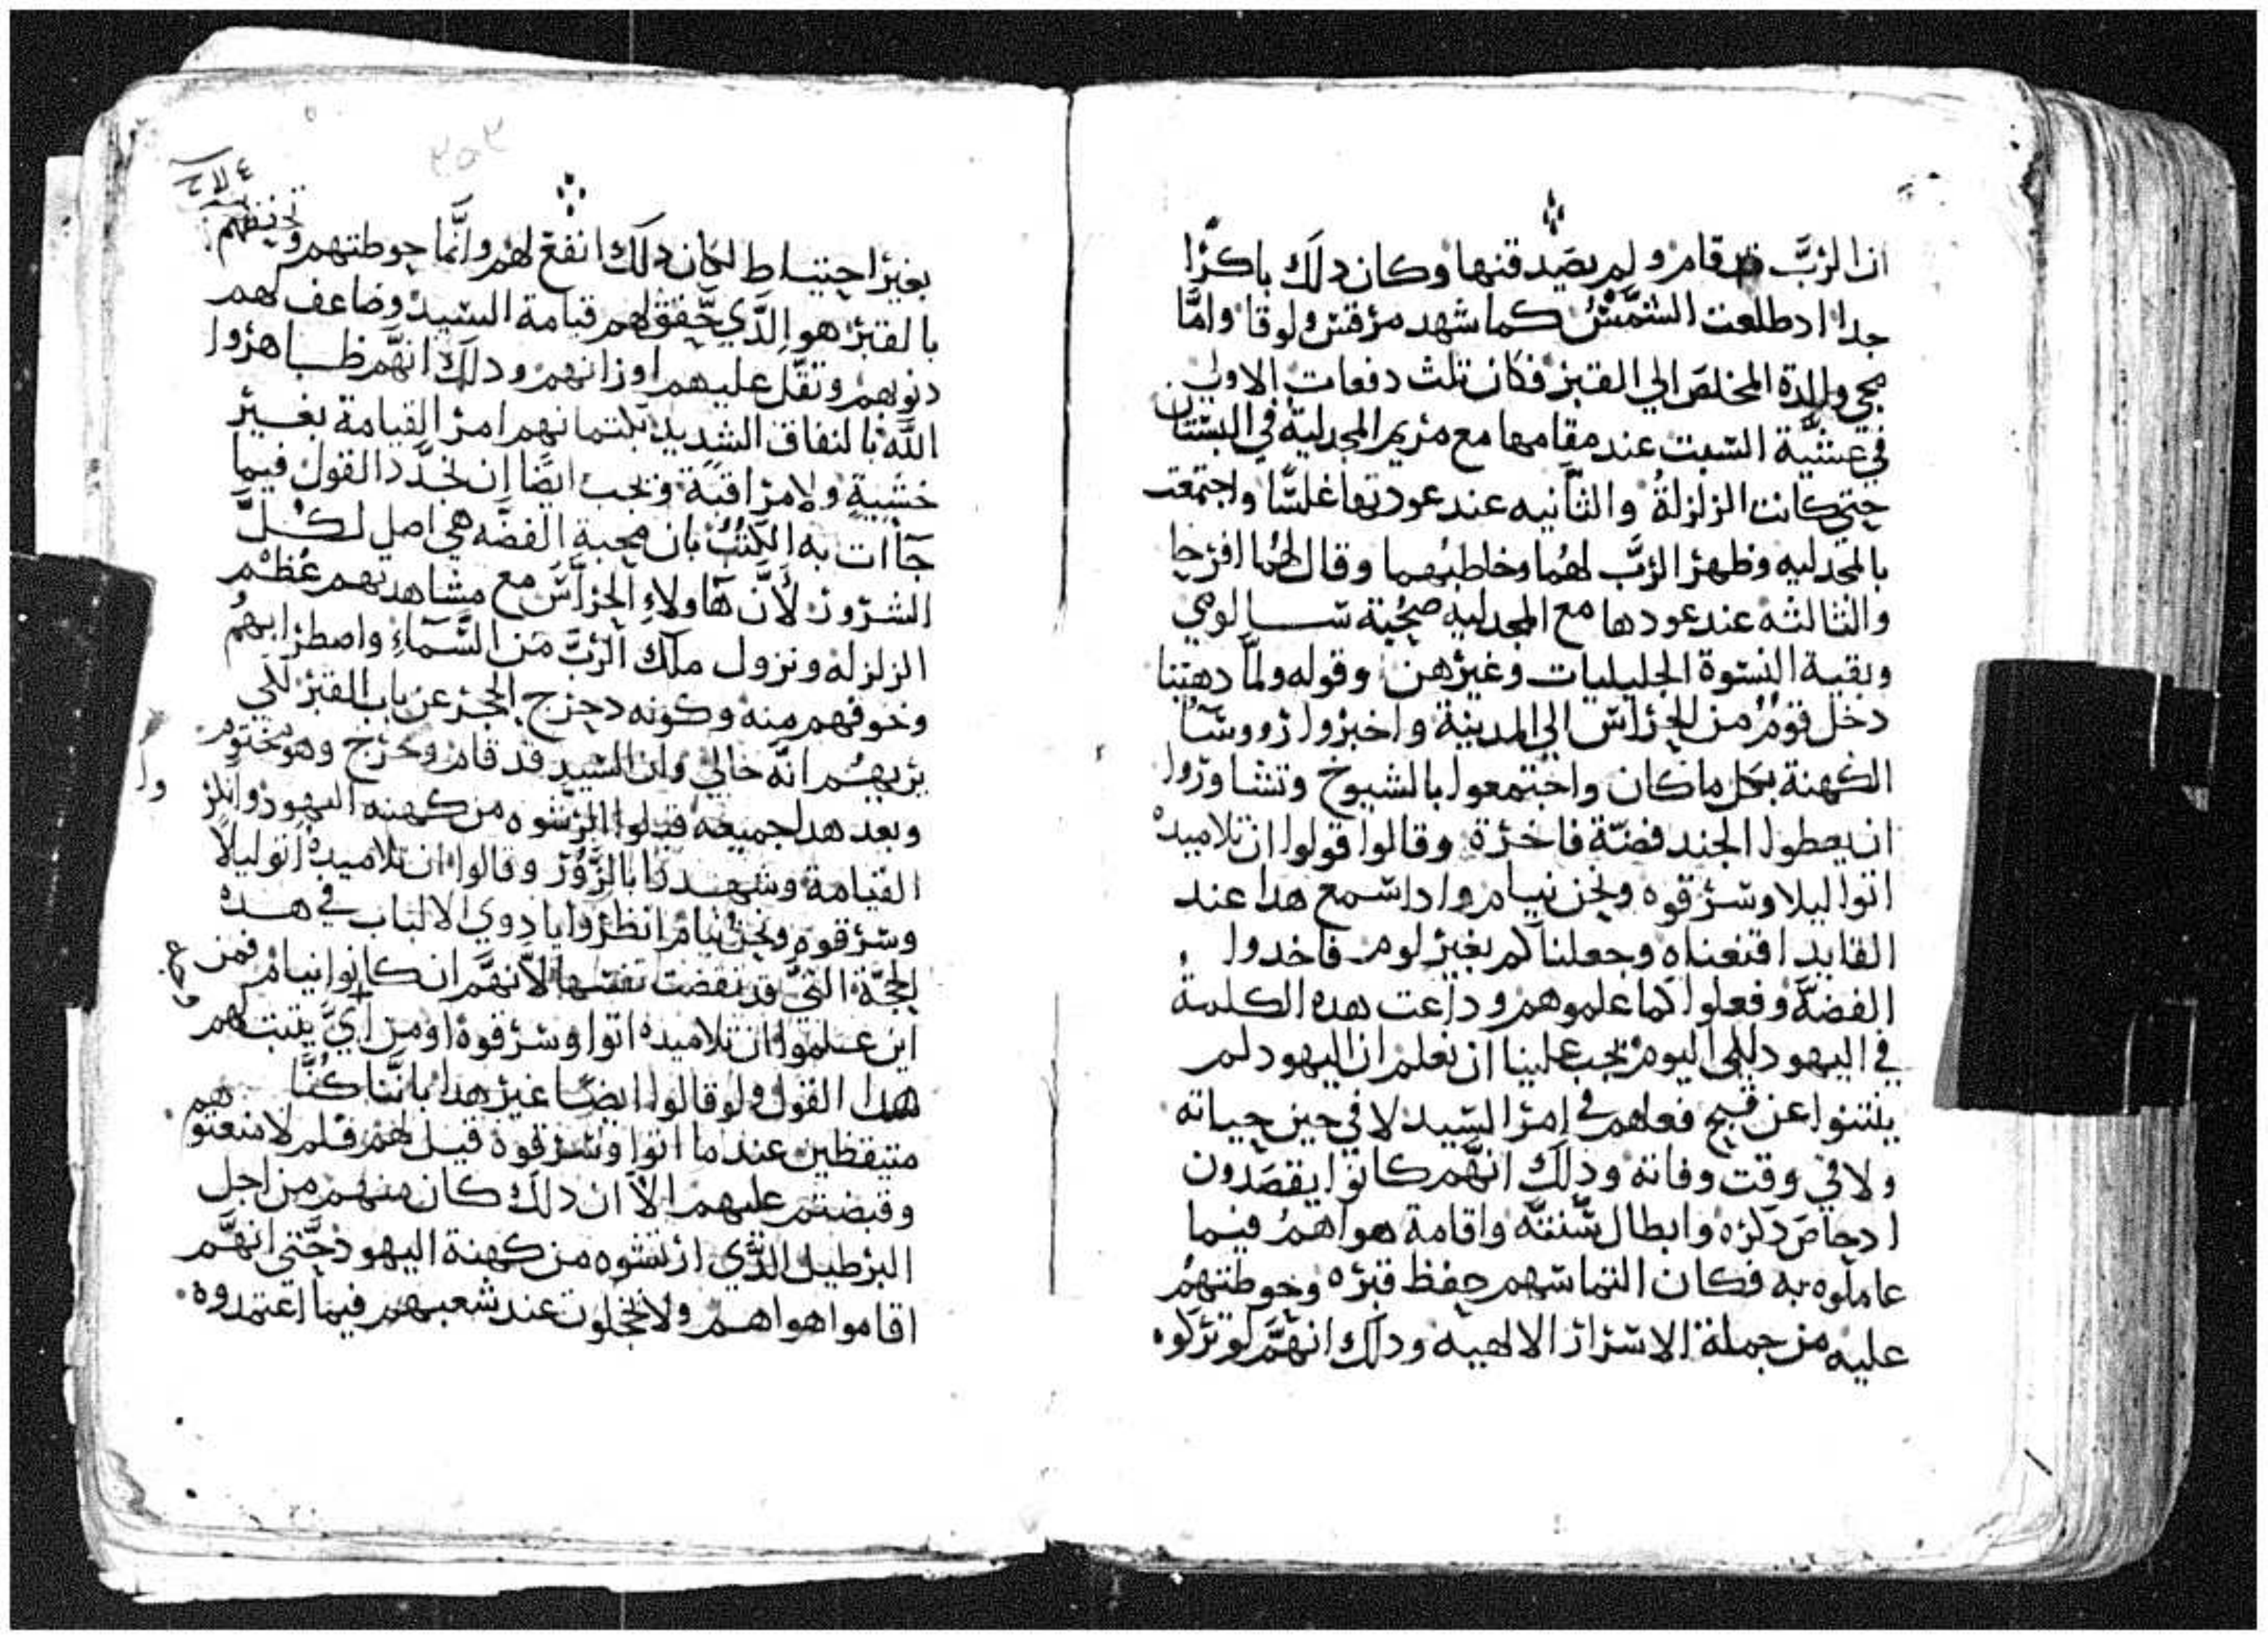 ان الرَّبَّ قد قام ولم يصَدقنها وكان دلَك باكرًا
جدا اد طلعت الشَّمْسُ كما شهد مرقس ولوقا وامَّا
مجي والدة المخلصَ الي القبر فكان تلث دفعات الاولي
في عشيَّة السَبت عند مقامها مع مريم المجدلية في البستان
حتي كانت الزلزلةُ والثانيه عند عودتها غلسًا واجتمعت
بالمجدليه وظهر الرَّب لهُما وخاطبُهما وقال لهُما افرحا
والثالثه عند عودها مع المجدليه صُحبة ســالومي
وبقية النسَوة الجليليات وغيرهن وقوله ولمَّا دهبنا
دخل قومُ من الحراسَ الي المدينة واخبروا رووسَا
الكهنة بكل ما كان واجتمعوا بالشيوخ وتشاوروا
ان يعطوا الجند فضّة فاخرة وقالوا قولوا ان تلاميدهُ
اتوا ليلا وسَرقوه ونحن نيام وادا سَمع هدا عند
القايد اقنعناه وجعلناكم بغير لوم فاخدوا
الفضَّة وفعلوا كما علموهم وداعت هده الكلمة
في اليهود للي اليوم يجب علينا ان نعلم ان اليهود لم
ينتنوا عن قبيح فعلهم في امر السَيد لا في حين حياته
ولا في وقت وفاته ودلَك انهَّم كانوا يقصَدون
ادحاصَ دكره وابطال سُّنتهَّ واقامة هواهمُ فيما
عاملوه به فكان التماسَهم حفظ قبره وحوطتهمُ
عليه من جملة الاسَرار الالهيه ودلَك انهَّم لو تركوه
بغير احتياط لكان دلَك انفع لهم وانَّما حوطتهم وتحفظهم
بالقبر هو الدَّي حَّقق لهم قيامة السَيد وضاعف لهم
دنوبهم وتقَّل عليهم اوزارهم ودلَك انهَّم ظــاهروا
اللَّه بالنفاق الشديد بكتمانهم امر القيامة بغـير
خشية ولا مراقبة ويجب ايضًا ان نجدَّد القول فيما
جآات به الكتبُ بان محبة الفضَّه هي اصل لكــلَّ
الشرور لأنَّ هاولاءِ الحراَّسَ مع مشاهدتهم عُظْم
الزلزله ونزول ملَاك الرَّبَّ من السَّماءِ واصطرابهمُ
وخوفهم منه وكونه دحرج الحجر عن باب القبر للي
يريهمُ انَّه خالي وان السَيد قد قام وخرج وهو مختوم
وبعد هدا جميعه قبلوا الرشوه من كهنه اليهود وانكار
القيامة وشهــدوا بالزَّور وقالوا ان تلاميدهُ اتو ليلاً
وسَرقوه ونحن نيام انظروا يا دوي الالباب في هــده
الحجَّة التيَّ قد نقضت نفسَها لأنهَّم ان كانوا نيام فمن
اين عــلموا ان تلاميده اتوا وسَرقوة او من ايَّ يتبت لهم
هدا القول ولو قالوا ايضًا غير هدا باننَّا كنُّا
متيقظين عند ما اتوا وسَرقوة قيل لهم فلم لا منعتوهم
وقبضتم عليهم الاَّ ان دلَك كان منهم من اجل
البرطيل الدَّي ارتشوه من كهنة اليهود حَّتي انهَّم
اقاموا هواهــم ولا يخجلون عند شعبهم فيما اعتمدوه